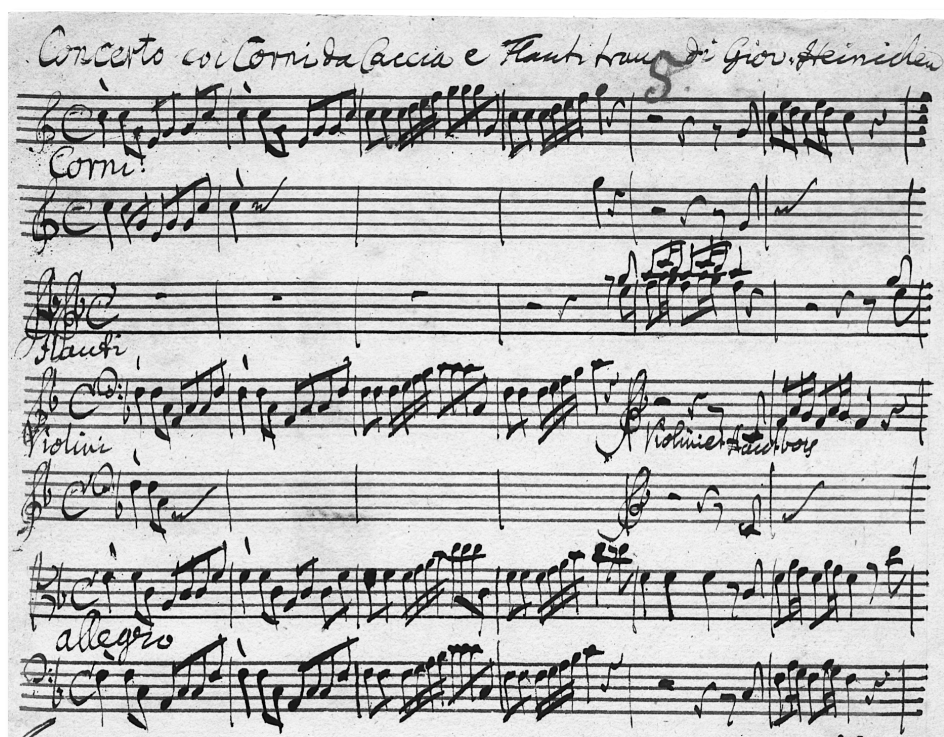 Concerto coi Corni da Caccia e Flauti trav di Giov. Heinichen
5.
Corni.
Flauti
Violini
Violini e Hautbois
allegro